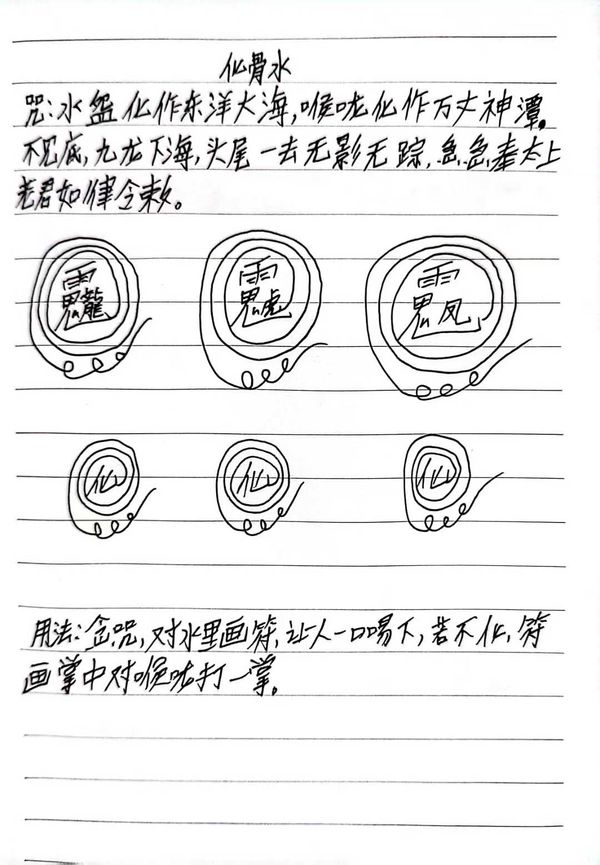 化骨水
咒:水盌化作东洋大海,喉咙化作万丈神潭。
不见底,九龙下海,头尾一去无影无踪,急急奉太上
老君如律令敕。
雨鬼龍 雨鬼虎 雨鬼凤
化 化 化
用法:念咒,对水里画符,让人一口喝下,若不化,符
画掌中对喉咙打一掌。